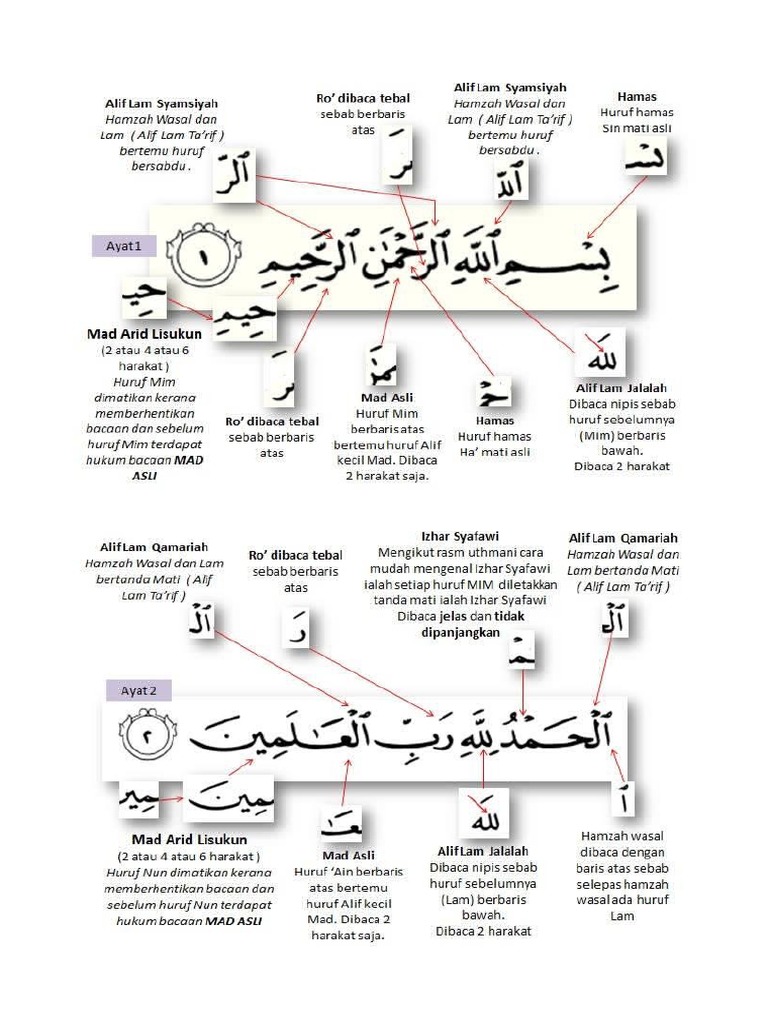 Alif Lam Syamsiyah
Hamzah Wasal dan
Lam ( Alif Lam Ta’rif )
bertemu huruf
bersabdu .
Ro’ dibaca tebal
sebab berbaris
atas
Alif Lam Syamsiyah
Hamzah Wasal dan
Lam ( Alif Lam Ta’rif )
bertemu huruf
bersabdu .
Hamas
Huruf hamas
Sin mati asli
الرَّ
رَ
اللَّ
سْ
Ayat 1
بِسْمِ اللَّهِ الرَّحْمَٰنِ الرَّحِيمِ ١
حِي
حِيمِ
رَ
مَٰنِ
حْ
للَّهِ
Mad Arid Lisukun
(2 atau 4 atau 6
harakat )
Huruf Mim
dimatikan kerana
memberhentikan
bacaan dan sebelum
huruf Mim terdapat
hukum bacaan MAD
ASLI
Ro’ dibaca tebal
sebab berbaris
atas
Mad Asli
Huruf Mim
berbaris atas
bertemu huruf Alif
kecil Mad. Dibaca
2 harakat saja.
Hamas
Huruf hamas
Ha’ mati asli
Alif Lam Jalalah
Dibaca nipis sebab
huruf sebelumnya
(Mim) berbaris
bawah.
Dibaca 2 harakat
Alif Lam Qamariah
Hamzah Wasal dan Lam
bertanda Mati ( Alif
Lam Ta’rif )
Ro’ dibaca tebal
sebab berbaris
atas
Izhar Syafawi
Mengikut rasm uthmani cara
mudah mengenal Izhar Syafawi
ialah setiap huruf MIM diletakkan
tanda mati ialah Izhar Syafawi
Dibaca jelas dan tidak
dipanjangkan
Alif Lam Qamariah
Hamzah Wasal dan
Lam bertanda Mati
( Alif Lam Ta’rif )
الْ
رَ
مْ
الْ
Ayat 2
الْحَمْدُ لِلَّهِ رَبِّ الْعَٰلَمِينَ ٢
مِي
مِينَ
عَٰ
للَّهِ
ا
Mad Arid Lisukun
(2 atau 4 atau 6 harakat )
Huruf Nun dimatikan kerana
memberhentikan bacaan dan
sebelum huruf Nun terdapat
hukum bacaan MAD ASLI
Mad Asli
Huruf ‘Ain berbaris
atas bertemu
huruf Alif kecil
Mad. Dibaca 2
harakat saja.
Alif Lam Jalalah
Dibaca nipis sebab
huruf sebelumnya
(Lam) berbaris
bawah.
Dibaca 2 harakat
Hamzah wasal
dibaca dengan
baris atas sebab
selepas hamzah
wasal ada huruf
Lam